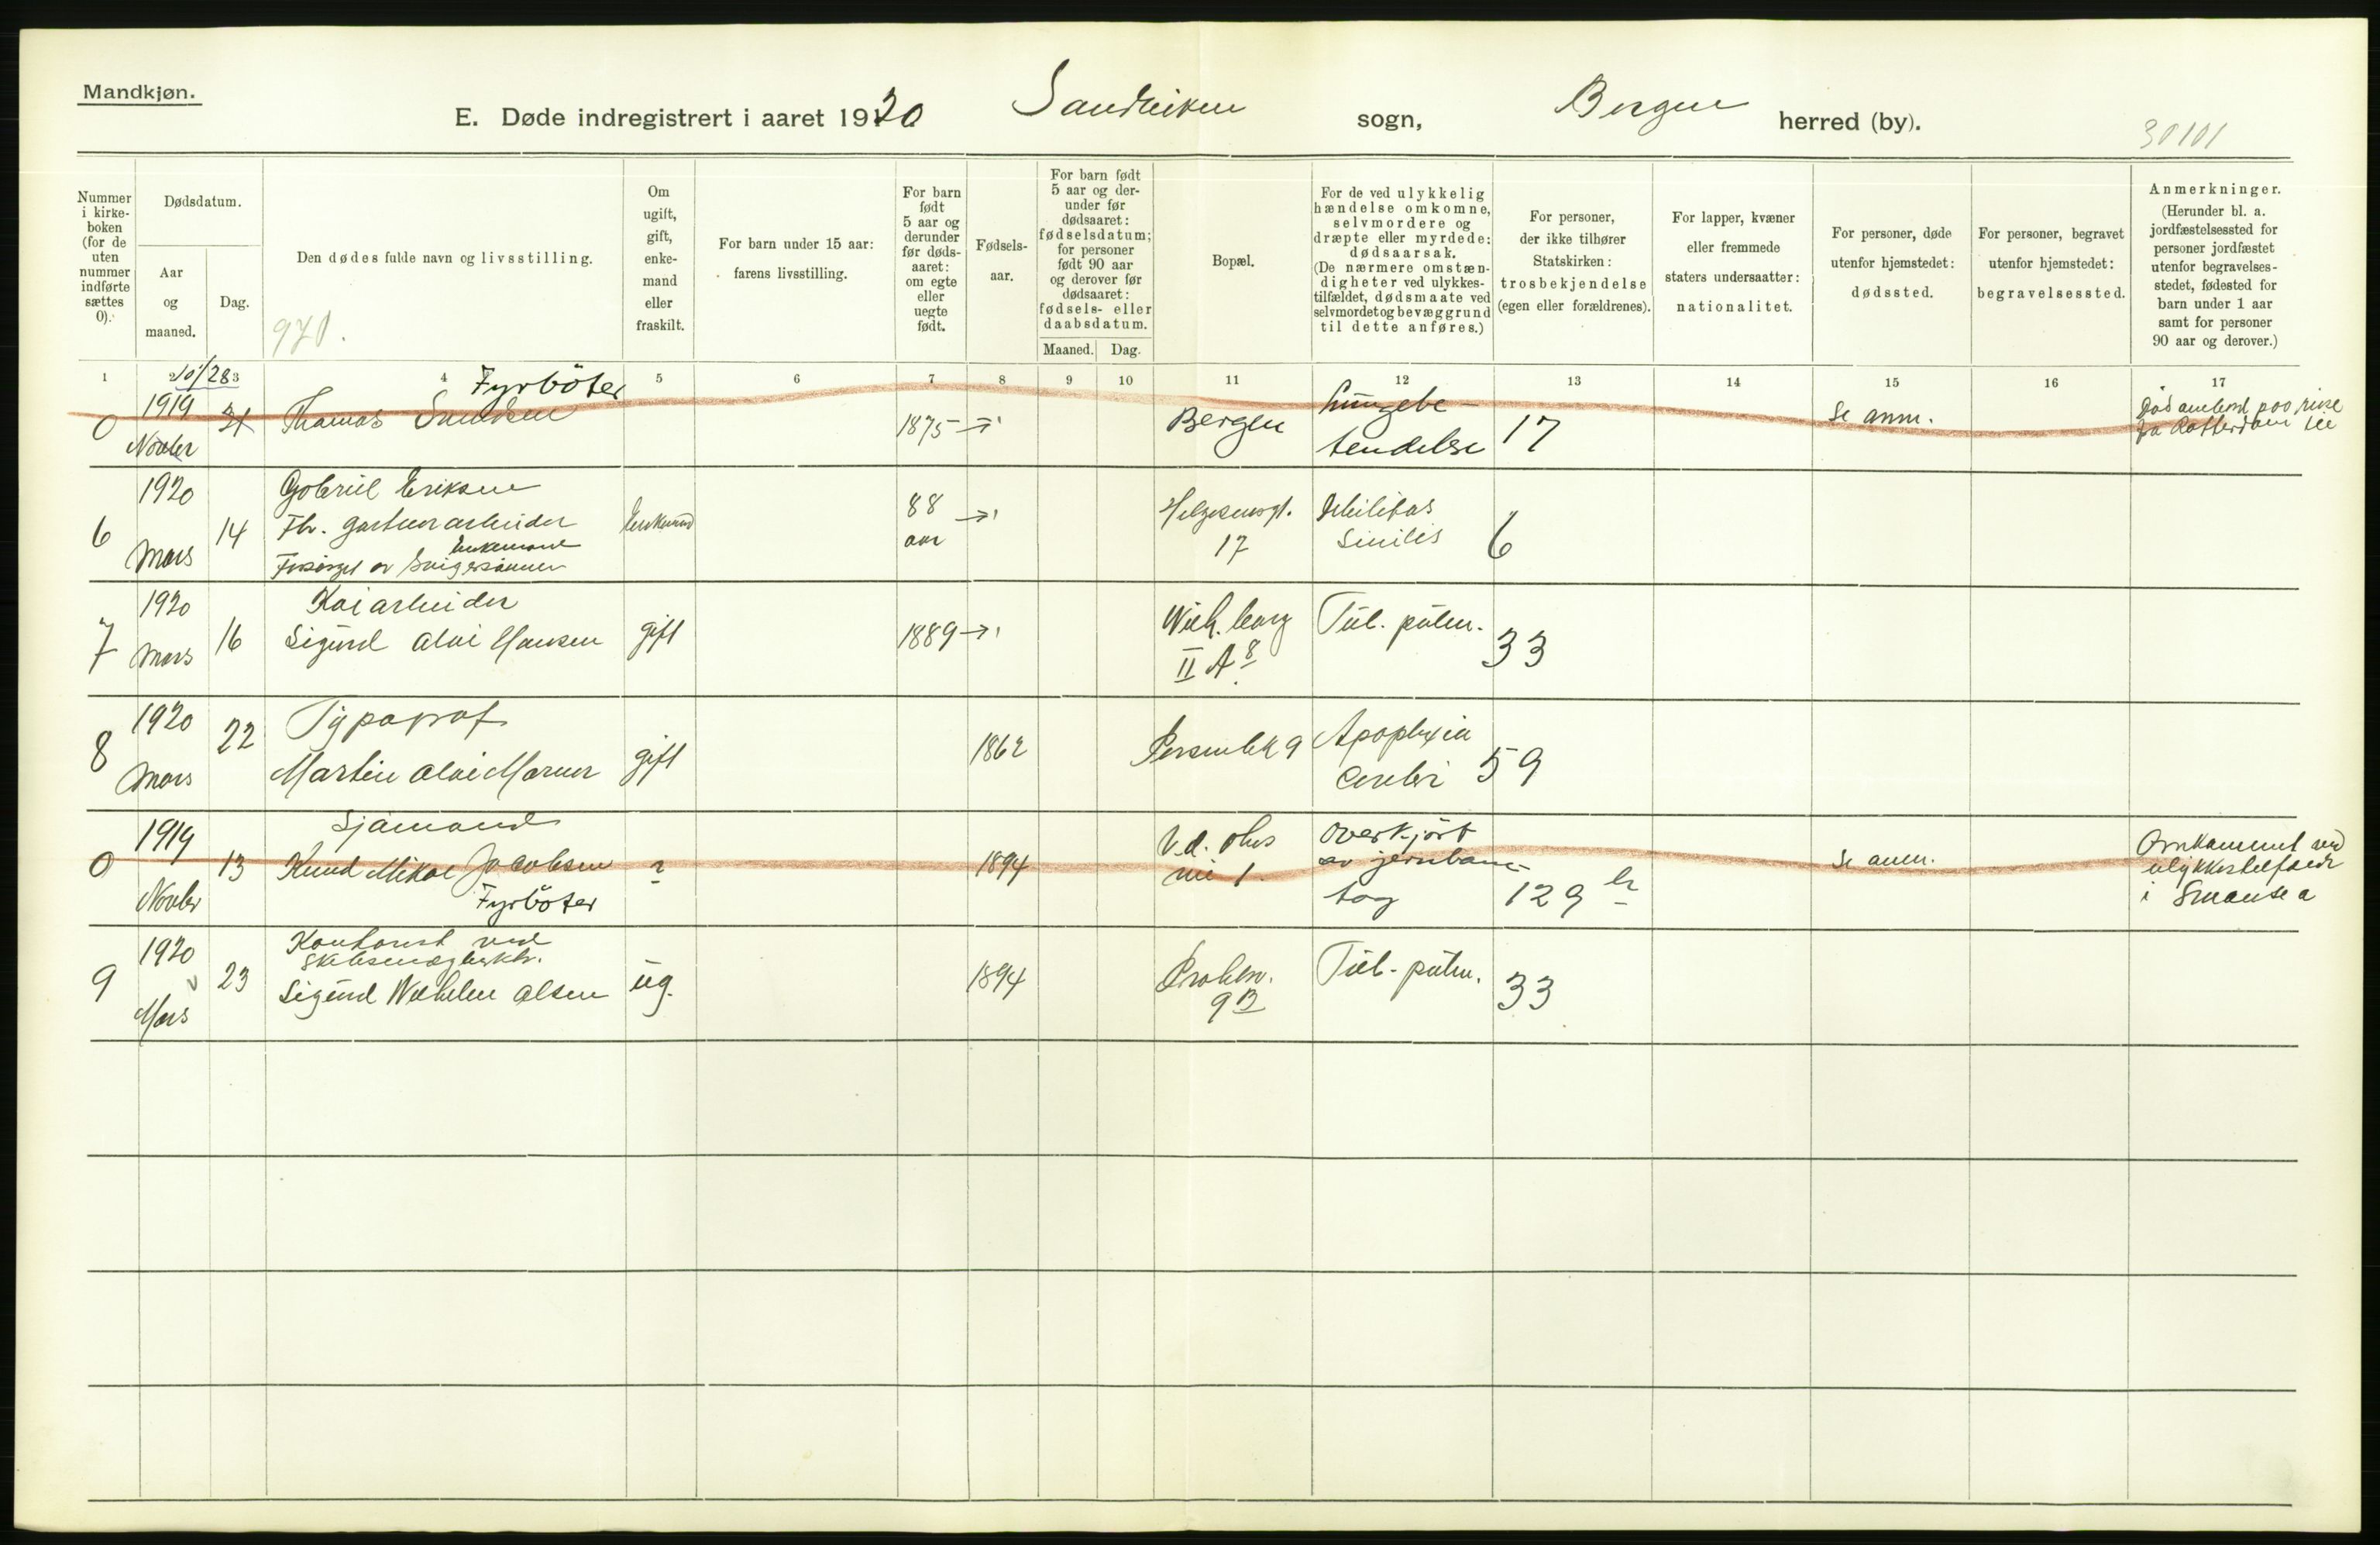 Mandkjøn.
E. Døde indregistrert i aaret 1920 Sandviken sogn, Bergen herred (by).
30101
Nummer i kirke-boken (for de uten nummer indførte sættes 0).
Dødsdatum.
Aar og maaned.
Dag.
Den dødes fulde navn og livsstilling.
970.
Om ugift, gift, enke-mand eller fraskilt.
For barn under 15 aar: farens livsstilling.
For barn født 5 aar og derunder før døds-aaret: om egte eller uegte født.
Fødsels-aar.
For barn født 5 aar og der-under før dødsaaret: fødselsdatum; for personer født 90 aar og derover før dødsaaret: fødsels- eller daabsdatum.
Maaned. Dag.
Bopæl.
For de ved ulykkelig hændelse omkomne, selvmordere og dræpte eller myrdede: dødsaarsak. (De nærmere omstæn-digheter ved ulykkes-tilfældet, dødsmaate ved selvmordet og bevæggrund til dette anføres.)
For personer, der ikke tilhører Statskirken: trosbekjendelse (egen eller forældrenes).
For lapper, kvæner eller fremmede staters undersaatter: nationalitet.
For personer, døde utenfor hjemstedet: dødssted.
For personer, begravet utenfor hjemstedet: begravelsessted.
Anmerkninger. (Herunder bl. a. jordfæstelsessted for personer jordfæstet utenfor begravelses-stedet, fødested for barn under 1 aar samt for personer 90 aar og derover.)
1 2 3 4 5 6 7 8 9 10 11 12 13 14 15 16 17
10/28
Fyrböter
0 1919 Novber Thomas 1875 Bergen Lungebe-tendelse 17 Se anm.
6 1920 Mars 14 Gabriel Eriksen
Fhv. gartnerarbeider
Enkemand
Forsørget av Svigersønnen
Enkemand 88 aar Helgesensgt. 17 Debilitas Senilis 6
7 1920 Mars 16 Kaiarbeider
Sigurd Alvi Hansen gift 1889 Wich. borg II A 8 Tub. pulm. 33
8 1920 Mars 22 Typograf
Martin gift 1862 9 Apoplexia Cerebri 59
0 1919 Novbr 13 Sjømand
Knud Mikal Jacobsen ? 1894 overkjört av jernbane-tog 129 Se anm. Omkommet ved ulykkestilfælde i Swansea
Fyrböter
9 1920 Mars 23 Kontorist ved
Sigurd Wilhelm Olsen ug. 1894 9B Tub. pulm. 33